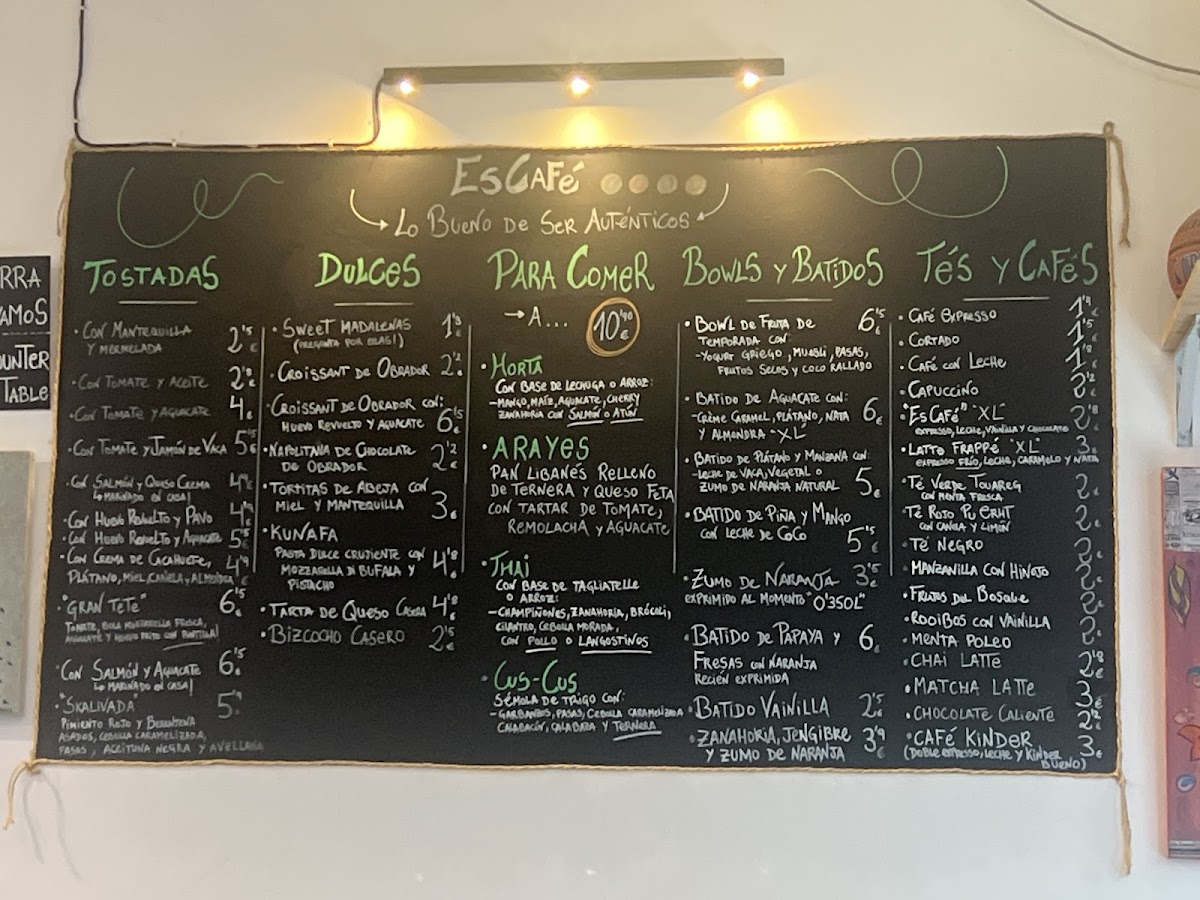 RRA
VAMOS
OUNTER
TABLE
EsCafé
Lo Bueno de Ser Auténticos
Tostadas
· Con Mantequilla 2'5 €
y mermelada
· Con Tomate y Aceite 2'8 €
· Con Tomate y Aguacate 4 €
· Con Tomate y Jamón de Vaca 5'5 €
· Con Salmón y Queso Crema
Lo marinado en casa!
· Con Huevo Revuelto y Pavo 4'9 €
· Con Huevo Revuelto y Aguacate 5'5 €
· Con Crema de Cacahuete, 4'9 €
Plátano, Miel, Canela, Almendra
· "Gran Teté" 6'5 €
Tomate, Bola Mozzarella Fresca,
Aguacate y Huevo Frito con Puntilla!
· Con Salmón y Aguacate 6'5 €
Lo marinado en casa!
· "Skalivada 5'9
Pimiento Rojo y Berenjena
Asados, Cebolla Caramelizada,
Pasas, Aceituna Negra y Avellana
Dulces
· Sweet Madalenas 1'8 €
(Pregunta por ellas!)
· Croissant de Obrador 2'2 €
· Croissant de Obrador con: 6'5 €
Huevo Revuelto y Aguacate
· Napolitana de Chocolate 2'2 €
de Obrador
· Tortitas de Abeja con 3 €
Miel y Mantequilla
· Kunafa
Pasta Dulce Crujiente con 4'8 €
Mozzarella di Bufala y
Pistacho
· Tarta de Queso Casera 4'8 €
· Bizcocho Casero 2'5 €
Para Comer
→ A... 10'90 €
· Horta
Con base de Lechuga o Arroz:
- Mango, Maíz, Aguacate, Cherry
Zanahoria con Salmón o Atún
· Arayes
Pan Libanés Relleno
de Ternera y Queso Feta
con Tartar de Tomate,
Remolacha y Aguacate
· Thai
Con base de Tagliatelle
o Arroz:
- Champiñones, Zanahoria, Brócoli,
Cilantro, Cebolla Morada,
con Pollo o Langostinos
· Cus-Cus
Sémola de Trigo con:
- Garbanzos, Pasas, Cebolla Caramelizada
Calabacín, Calabaza y Ternera
Bowls y Batidos
· Bowl de Fruta de 6'5 €
Temporada con:
- Yogurt Griego, Muesli, Pasas,
Frutos Secos y Coco Rallado
· Batido de Aguacate con: 6 €
- Crème Caramel, Plátano, Nata
y Almendra "XL"
· Batido de Plátano y Manzana con:
- Leche de Vaca, Vegetal o 5 €
Zumo de Naranja Natural
· Batido de Piña y Mango
con Leche de Coco 5'5 €
· Zumo de Naranja 3'5 €
Exprimido al momento "O'35OL"
· Batido de Papaya y 6 €
Fresas con Naranja
Recién Exprimida
· Batido Vainilla 2'5 €
· Zanahoria, Jengibre 3'9 €
y Zumo de Naranja
Tés y Cafés
· Café Expresso 1'4 €
· Cortado 1'5 €
· Café con Leche
· Capuccino 2'2 €
· "EsCafé" "XL" 2'8 €
Expresso, Leche, Vainilla y Chocolate
· Latto Frappé "XL" 3 €
Expresso Frío, Leche, Caramelo y Nata
· Té Verde Touareg 2 €
con Menta Fresca
· Té Rojo Pu Erht 2 €
con Canela y Limón
· Té Negro 2 €
· Manzanilla con Hinojo 2 €
· Frutos del Bosque 2 €
· Rooibos con Vainilla 2 €
· Menta Poleo 2 €
· Chai Latte 2'8 €
· Matcha Latte 3 €
· Chocolate Caliente 2'2 €
· Café Kinder 3 €
(Doble Expresso, Leche y Kinder
Bueno)